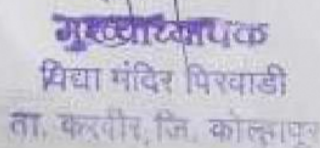 मुख्याध्यापक
विद्या मंदिर पिरवाडी
ता. करवीर, जि. कोल्हापूर